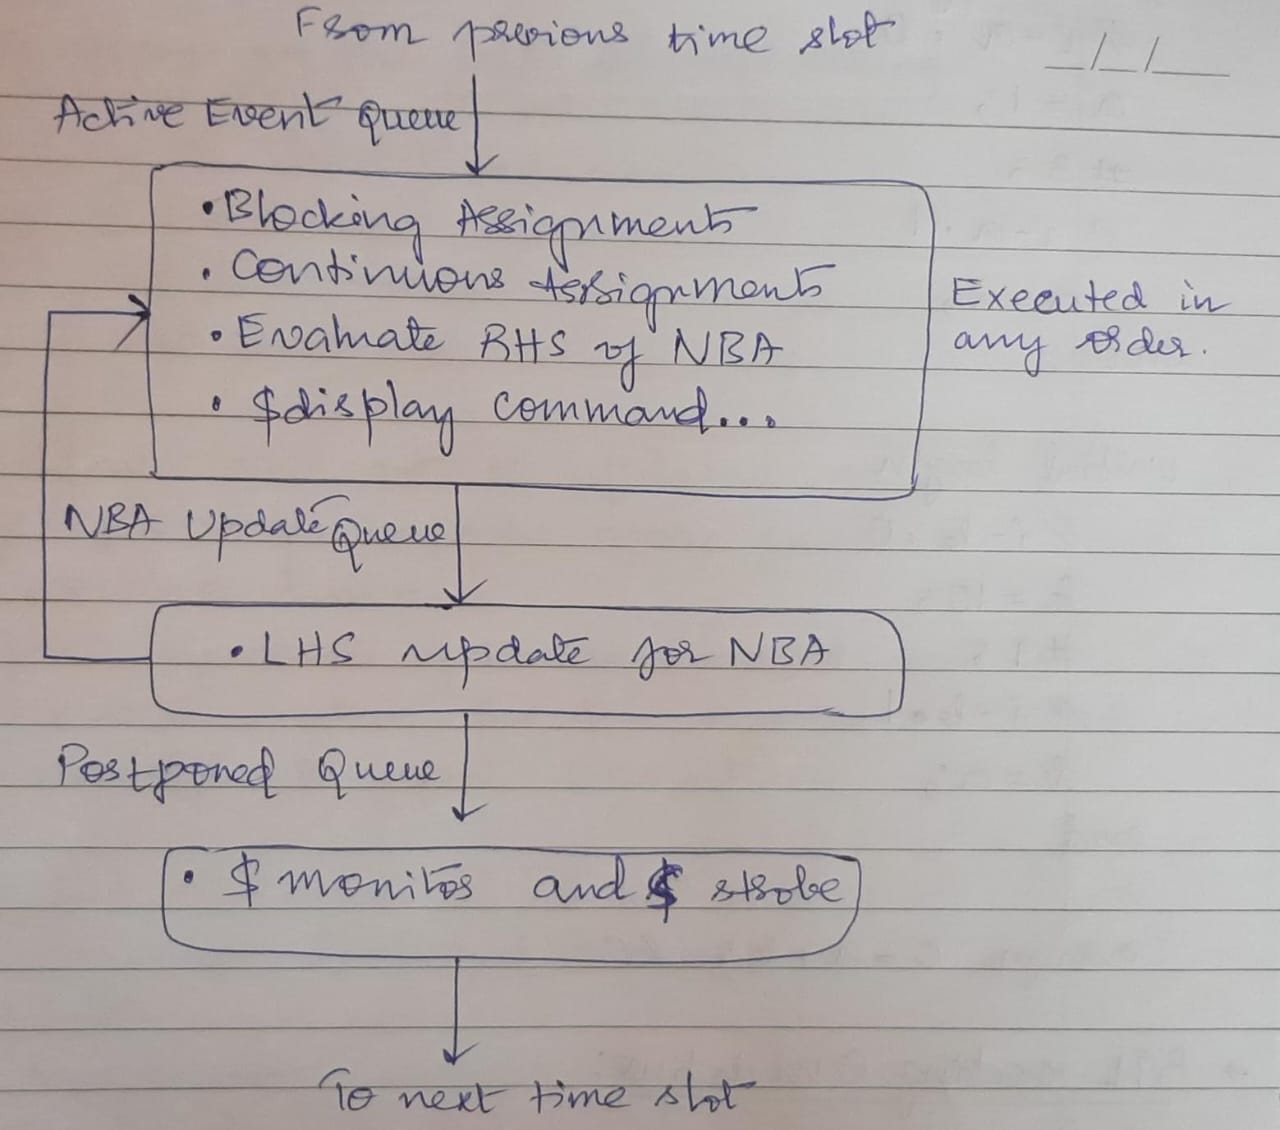 From previous time slot
_/_/__
Active Event Queue
• Blocking Assignments
• Continuous Assignments
• Evaluate RHS of NBA
• $display command...
Executed in
any order.
NBA Update Queue
• LHS update for NBA
Postponed Queue
• $monitor and $ strobe
To next time slot